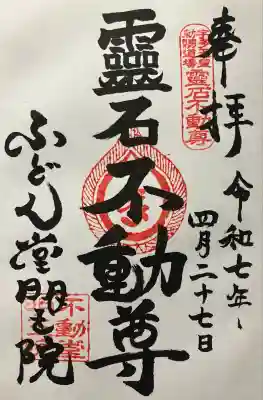 奉拝
令和七年
四月二十七日
靈石不動尊
ふどん堂明王院
靈石不動尊
不動堂